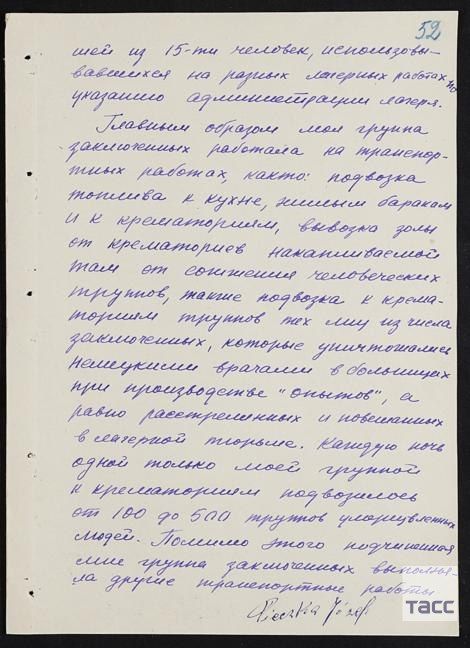 52
шей из 15-ти человек, использовы-
вавшихся на разных лагерных работах по
указанию администрации лагеря.
Главным образом моя группа
заключенных работала на транспор-
тных работах, както: подвозка
топлива к кухне, жилым баракам
и к крематориям, вывозка золы
от крематориев накапливаемой
там от сожжения человеческих
труппов, также подвозка к крема-
ториям труппов тех лиц из числа
заключенных, которые уничтожались
немецкими врачами в больницах
при производстве "опытов", а
равно расстрелянных и повешанных
в лагерной тюрьме. Каждую ночь
одной только моей группой
к крематориям подвозилось
от 100 до 500 труппов умерщвленных
людей. Помимо этого подчиненная
мне группа заключенных выполня-
ла другие транспортные работы
Pieczka Józef
ТАСС